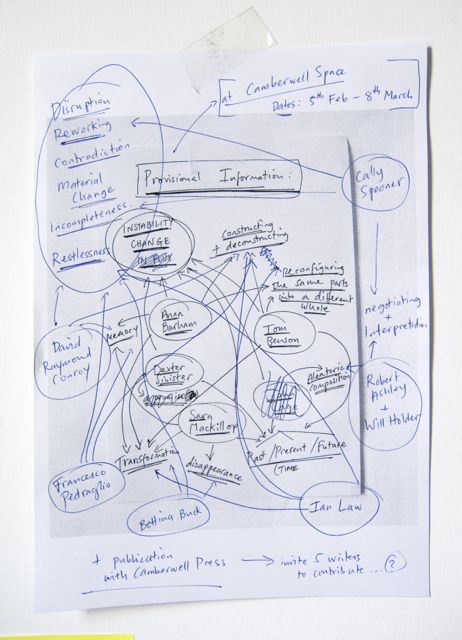 at Camberwell Space
Dates: 5th Feb – 8th March
Disruption
Reworking
Contradiction
Material
Change
Incompleteness.
Restlessness
Provisional Information:
Cally
Spooner
INSTABILITY
CHANGE
Constructing
+ deconstructing
Reconfiguring
the same parts
into a different
whole
negotiating
+
Interpretation
Anna
Barham
Tom
Benson
memory
David
Raymond
Conroy
Dexter
Sinister
Aleatoric
composition
Robert
Ashley
+
Will Holder
Sara
Mackillop
Transformation
disappearance
Past / Present / Future
(TIME
Francesco
Pedraglio
Betting Buck
Ian Law
+ publication
with Camberwell Press
→ invite 5 writers
to contribute ... ?